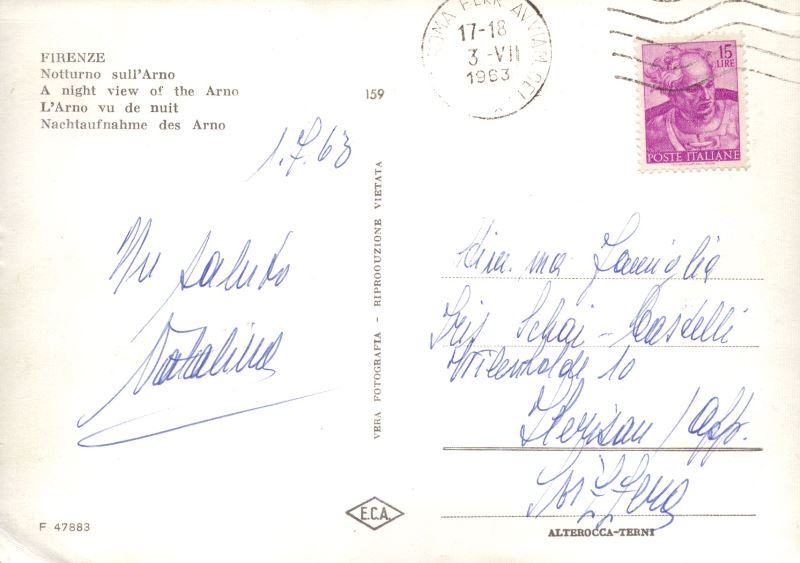 FIRENZE
Notturno sull'Arno
A night view of the Arno
L'Arno vu de nuit
Nachtaufnahme des Arno
159
1.7.63
Un saluto
Natalina
VERA FOTOGRAFIA - RIPRODUZIONE VIETATA
F 47883
E.C.A.
ROMA FERR AVVIAM
17-18
3-VII
1963
15
LIRE
POSTE ITALIANE
Famiglia
Schai - Castelli
10
Herisau / App.
Svizzera
ALTEROCCA-TERNI